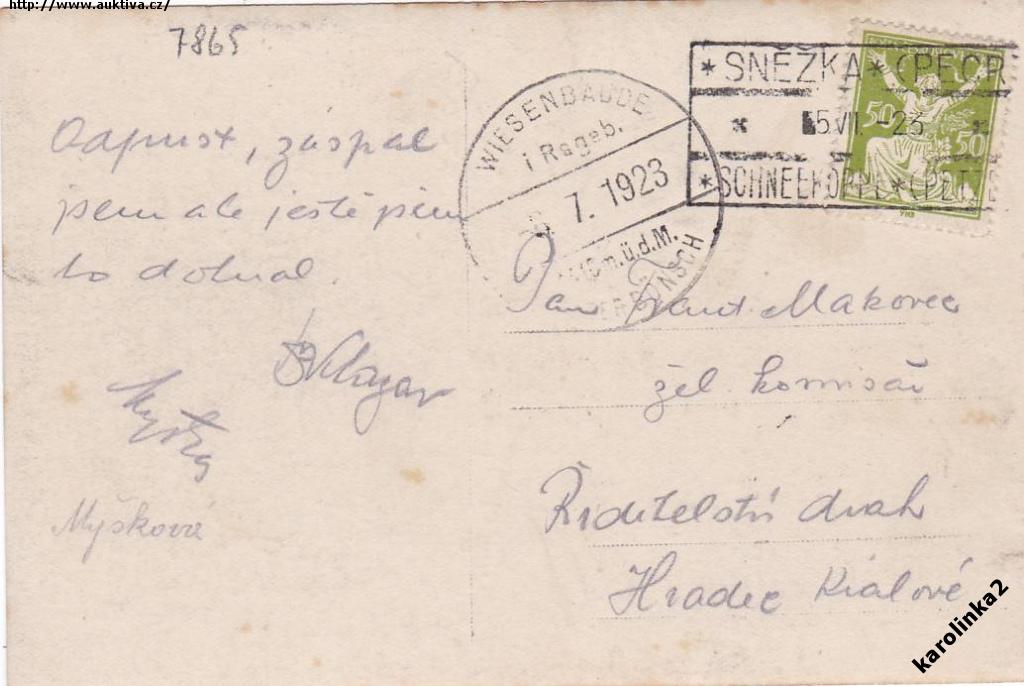 http://www.auktiva.cz/
7865
Odpust, zaspal
jsem ale ještě jsem
to dohnal.
Myšková
WIESENBAUDE
i Rsgeb.
7. 1923
m.ü.d.M.
*SNĚŽKA*(PECR
5.VI.-23
*SCHNEEKOPPE*(PETZE
50 50
Pan Makovec
žel komisař
Ředitelství drah
Hradec Králové
karolinka2